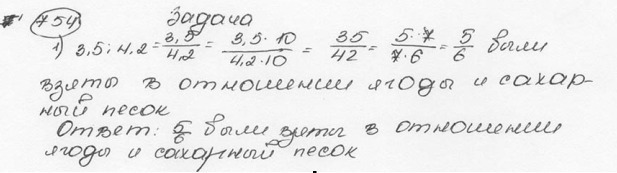 754 Задача
1) 3,5 : 4,2 = 3,5/4,2 = 3,5 · 10/4,2 · 10 = 35/42 = 5 · 7/7 · 6 = 5/6 были
взяты в отношении ягоды и сахар-
ный песок
Ответ: 5/6 были взяты в отношении
ягоды и сахарный песок